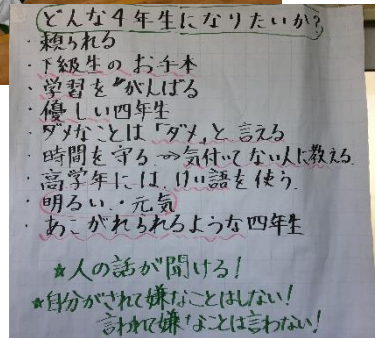 どんな4年生になりたいか？
・頼られる
・下級生のお手本
・学習をがんばる
・優しい四年生
・ダメなことは「ダメ」と言える
・時間を守る→気付いてない人に教える
・高学年には、けい語を使う
・明るい・元気
・あこがれられるような四年生
★人の話が聞ける！
★自分がされて嫌なことはしない！
言われて嫌なことは言わない！